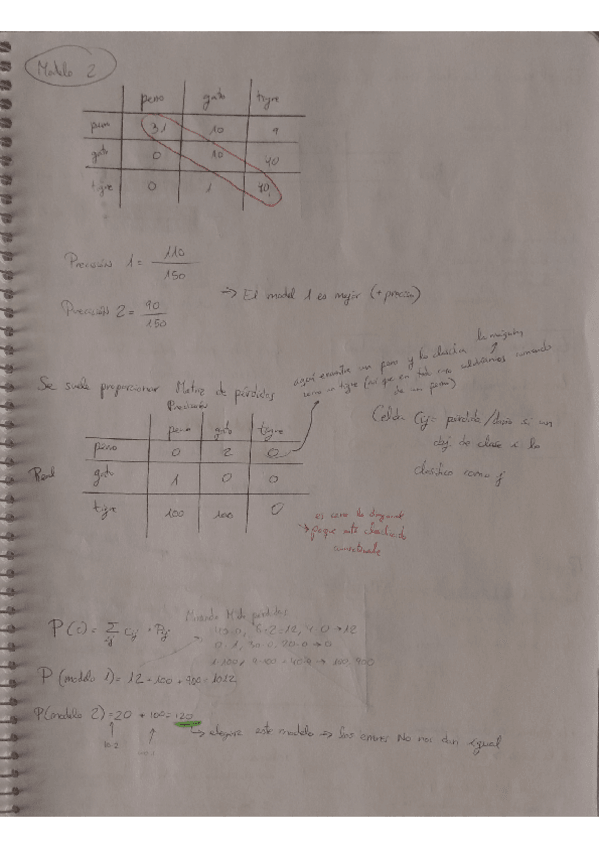 Modelo 2
perro gato tigre
perro 31 10 9
gato 0 10 40
tigre 0 1 40
Precisión 1 = 110 / 150
Precisión 2 = 90 / 150
→ El model 1 es mejor (+ preciso)
Se suele proporcionar Matriz de pérdidas
la máquina
aquí encuentra un perro y la clasifica
como un tigre (así que en
de un perro)
Predicción
perro gato tigre
Real
perro 0 2 0
gato 1 0 0
tigre 100 100 0
Celda Cij: pérdida/daño si un
obj. de clase i la
clasifico como j
es cero la diagonal
porque está clasificado
correctamente
Mirando M de pérdidas
P(c) = Σ Cij · Pij
ij
P(modelo 1) = 12 + 100 + 900 = 1012
P(modelo 2) = 20 + 100 = 120
→ elegiré este modelo → los errores No nos dan igual
10·2